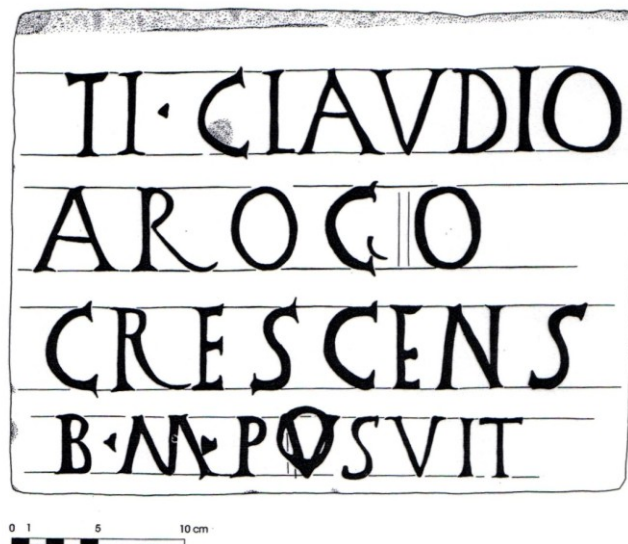 TI · CLAVDIO
AROGO
CRESCENS
B · M · POSVIT
0 1 5 10 cm